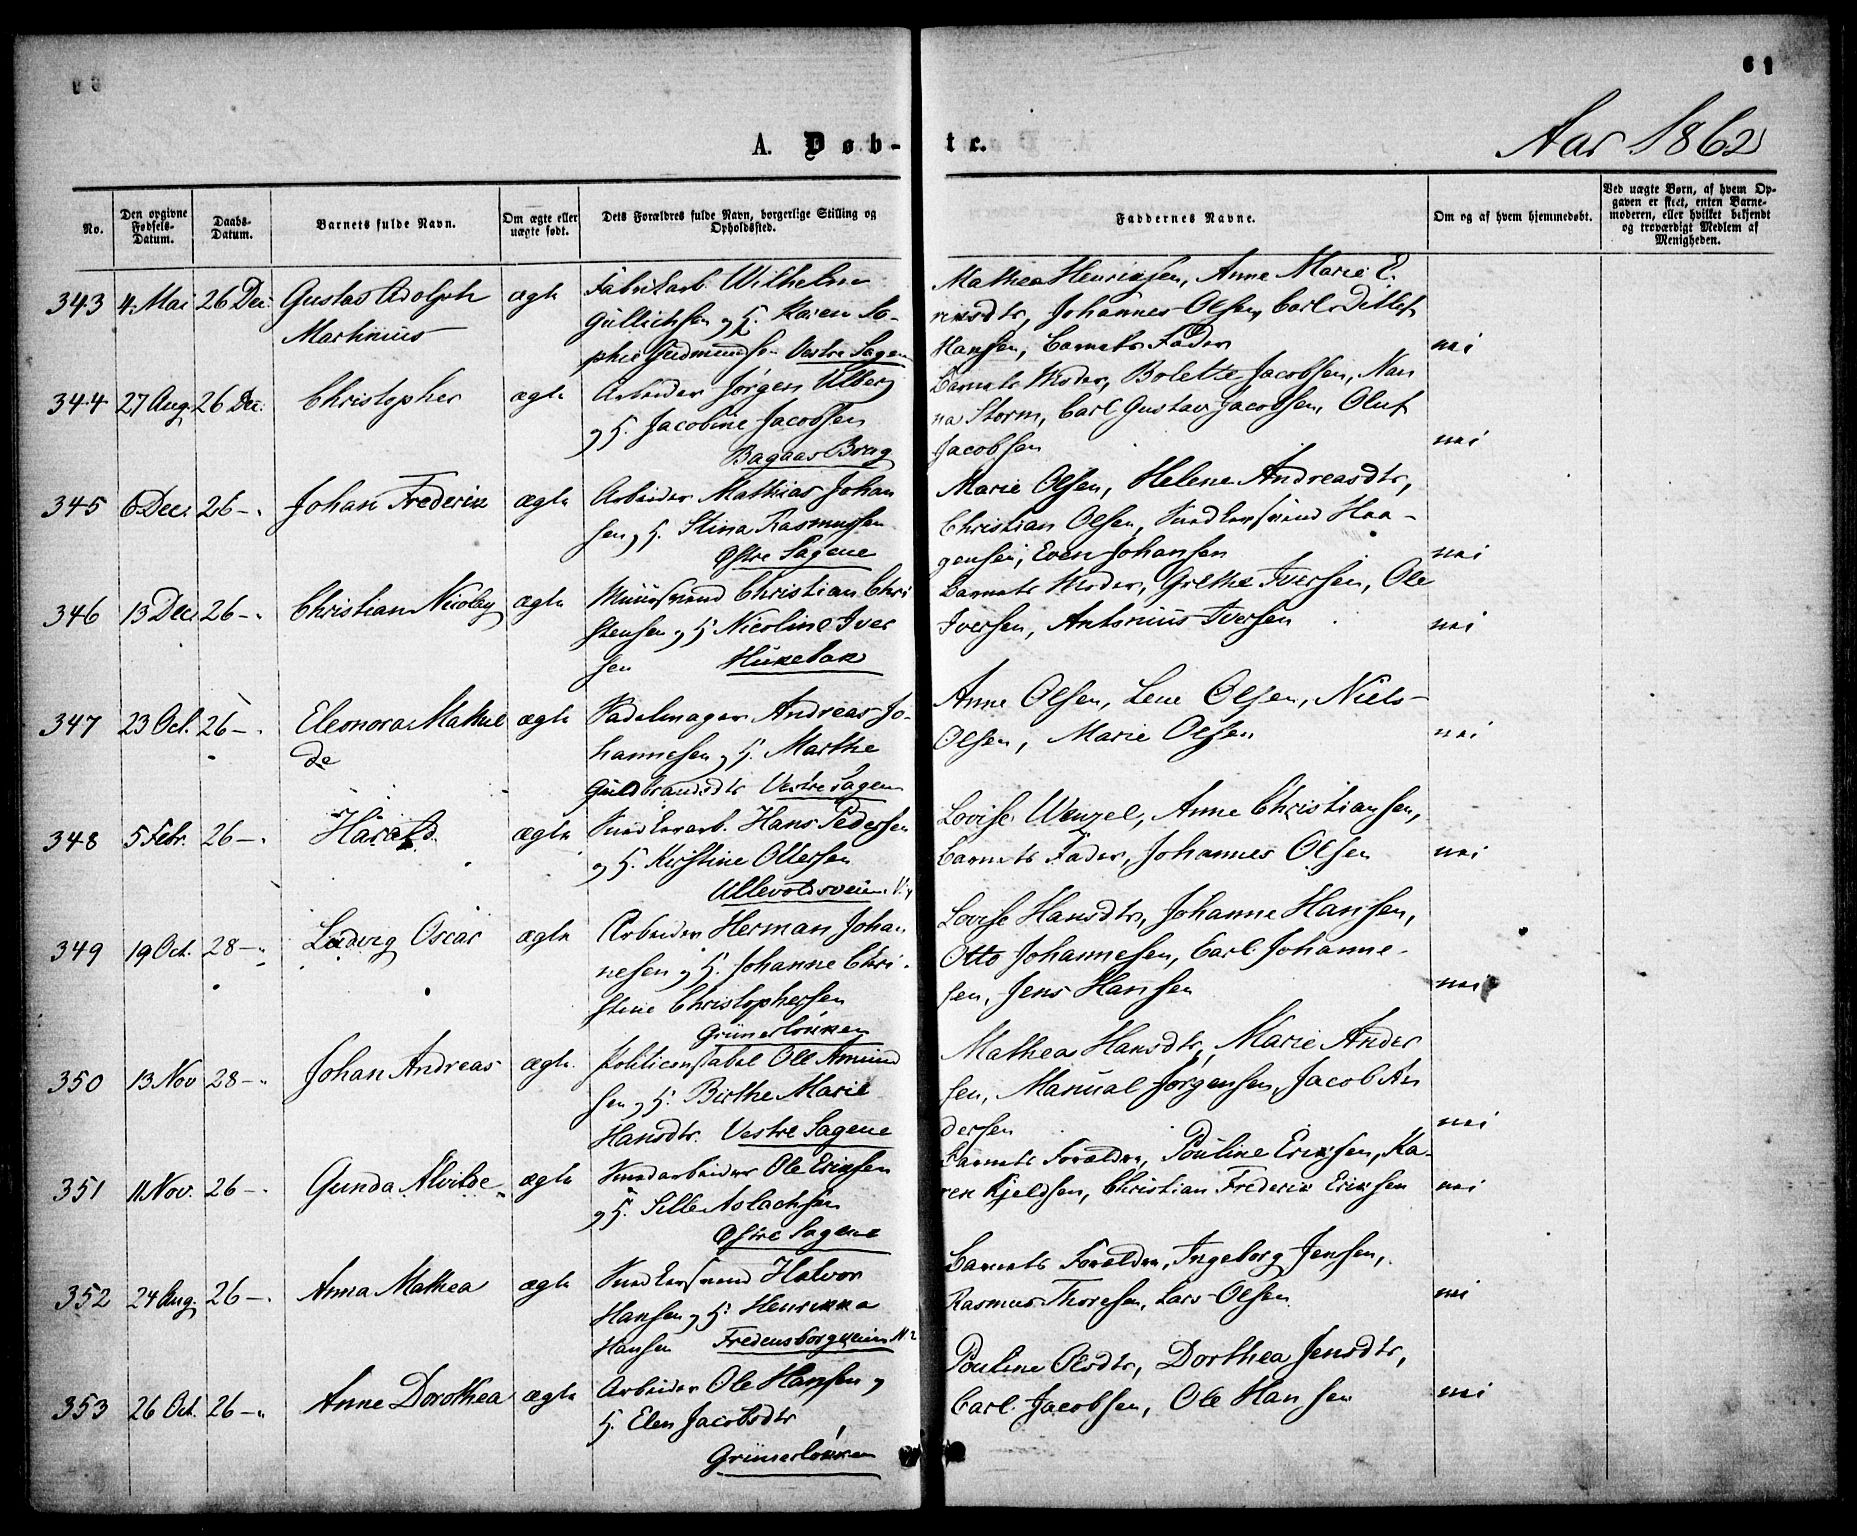 61
A. Døb-te.
Aar 1862
No.
Den opgivne Fødsels-Datum.
Daabs-Datum.
Barnets fulde Navn.
Om ægte eller uægte født.
Dets Forældres fulde Navn, borgerlige Stilling og Opholdssted.
Faddernes Navne.
Om og af hvem hjemmedøbt.
Ved uægte Børn, af hvem Opgaven er skeet, enten Barnemoderen, eller hvilket bekjendt og troværdigt Medlem af Menigheden.
343 4 Mai 26 Dec. Gustav Adolph ægte Fabrikarb. Wilhelm
Martinius
Gullichsen og H. Karen So-
phie Gudmundsen Vestre Sagen
Mathea Henriksen, Anne Marie E.
riksdtr, Johannes Olsen, Carl Ditlef
Hansen, Barnets Fader nei
344 27 Aug. 26 Dec. Christopher ægte Arbeider Jørgen Ulberg
og H. Jacobine Jacobsen
Bagaas Brug
Barnets Moder, Bolette Jacobsen, Nan
na Storm, Carl Gustav Jacobsen, Oluf
Jacobsen nei
345 6 Dec. 26 -. Johan Frederik ægte Arbeider Mathias Johan
sen og H. Stina Rasmussen
Østre Sagene
Marie Olsen, Helene Andreasdtr,
Christian Olsen, Snedkersvend Haa-
gensen, Even Johansen nei
346 13 Dec. 26 -. Christian Nicolay ægte Muursvend Christian Chri
stensen og H Nicoline Iver
sen
Barnets Moder, Grethe Iversen, Ole
Iversen, Antonius Iversen nei
347 23 Oct. 26 -. Eleonora Mathil ægte Sadelmager Andreas Jo-
de
hannesen og H. Marthe
Guldbrandsdtr Vestre Sagen
Anne Olsen, Lene Olsen, Niels
Olsen, Marie Olsen nei
348 5 Febr. 26 -. Harald ægte Snedkerarb. Hans Pedersen
og H. Kirstine Ottersen
Ullevoldsveien
Lovise Wenzel, Anne Christiansen,
Barnets Fader, Johannes Olsen nei
349 19 Oct. 28 -. Ludvig Oscar ægte Arbeider Herman Johan
nesen og H. Johanne Chri-
stine Christophersen
Grünerløkken
Lovise Hansdtr, Johanne Hansen,
Otto Johannesen, Carl Johanne-
sen, Jens Hansen nei
350 13 Nov 28 -. Johan Andreas ægte. Politiconstabel Ole Amund
sen og H. Birthe Marie
Hansdtr. Vestre Sagene
Mathea Hansdtr, Marie Ander
sen, Manual Jørgensen, Jacob An
dersen nei
351 11 Nov. 26 -. Gunda Alvilde ægte Ole Eriksen
og H. Sille Aslachsen
Østre Sagene
Barnets Forældre, Pouline Eriksen, Ka-
ren Kjeldsen, Christian Frederik Eriksen nei
352 24 Aug. 26 -. Anna Mathea ægte Snedkersvend Halvor
Hansen og H. Henrikka
Hansen Fredensborgveien
Barnets Forældre, Ingeborg Jensen,
Rasmus Thoresen, Lars Olsen nei
353 26 Oct. 26 -. Anne Dorothea ægte Arbeider Ole Hansen og
H. Elen Jacobsdtr
Grünerløkken
Pouline Olsdtr, Dorthea Jensdtr,
Carl Jacobsen, Ole Hansen nei